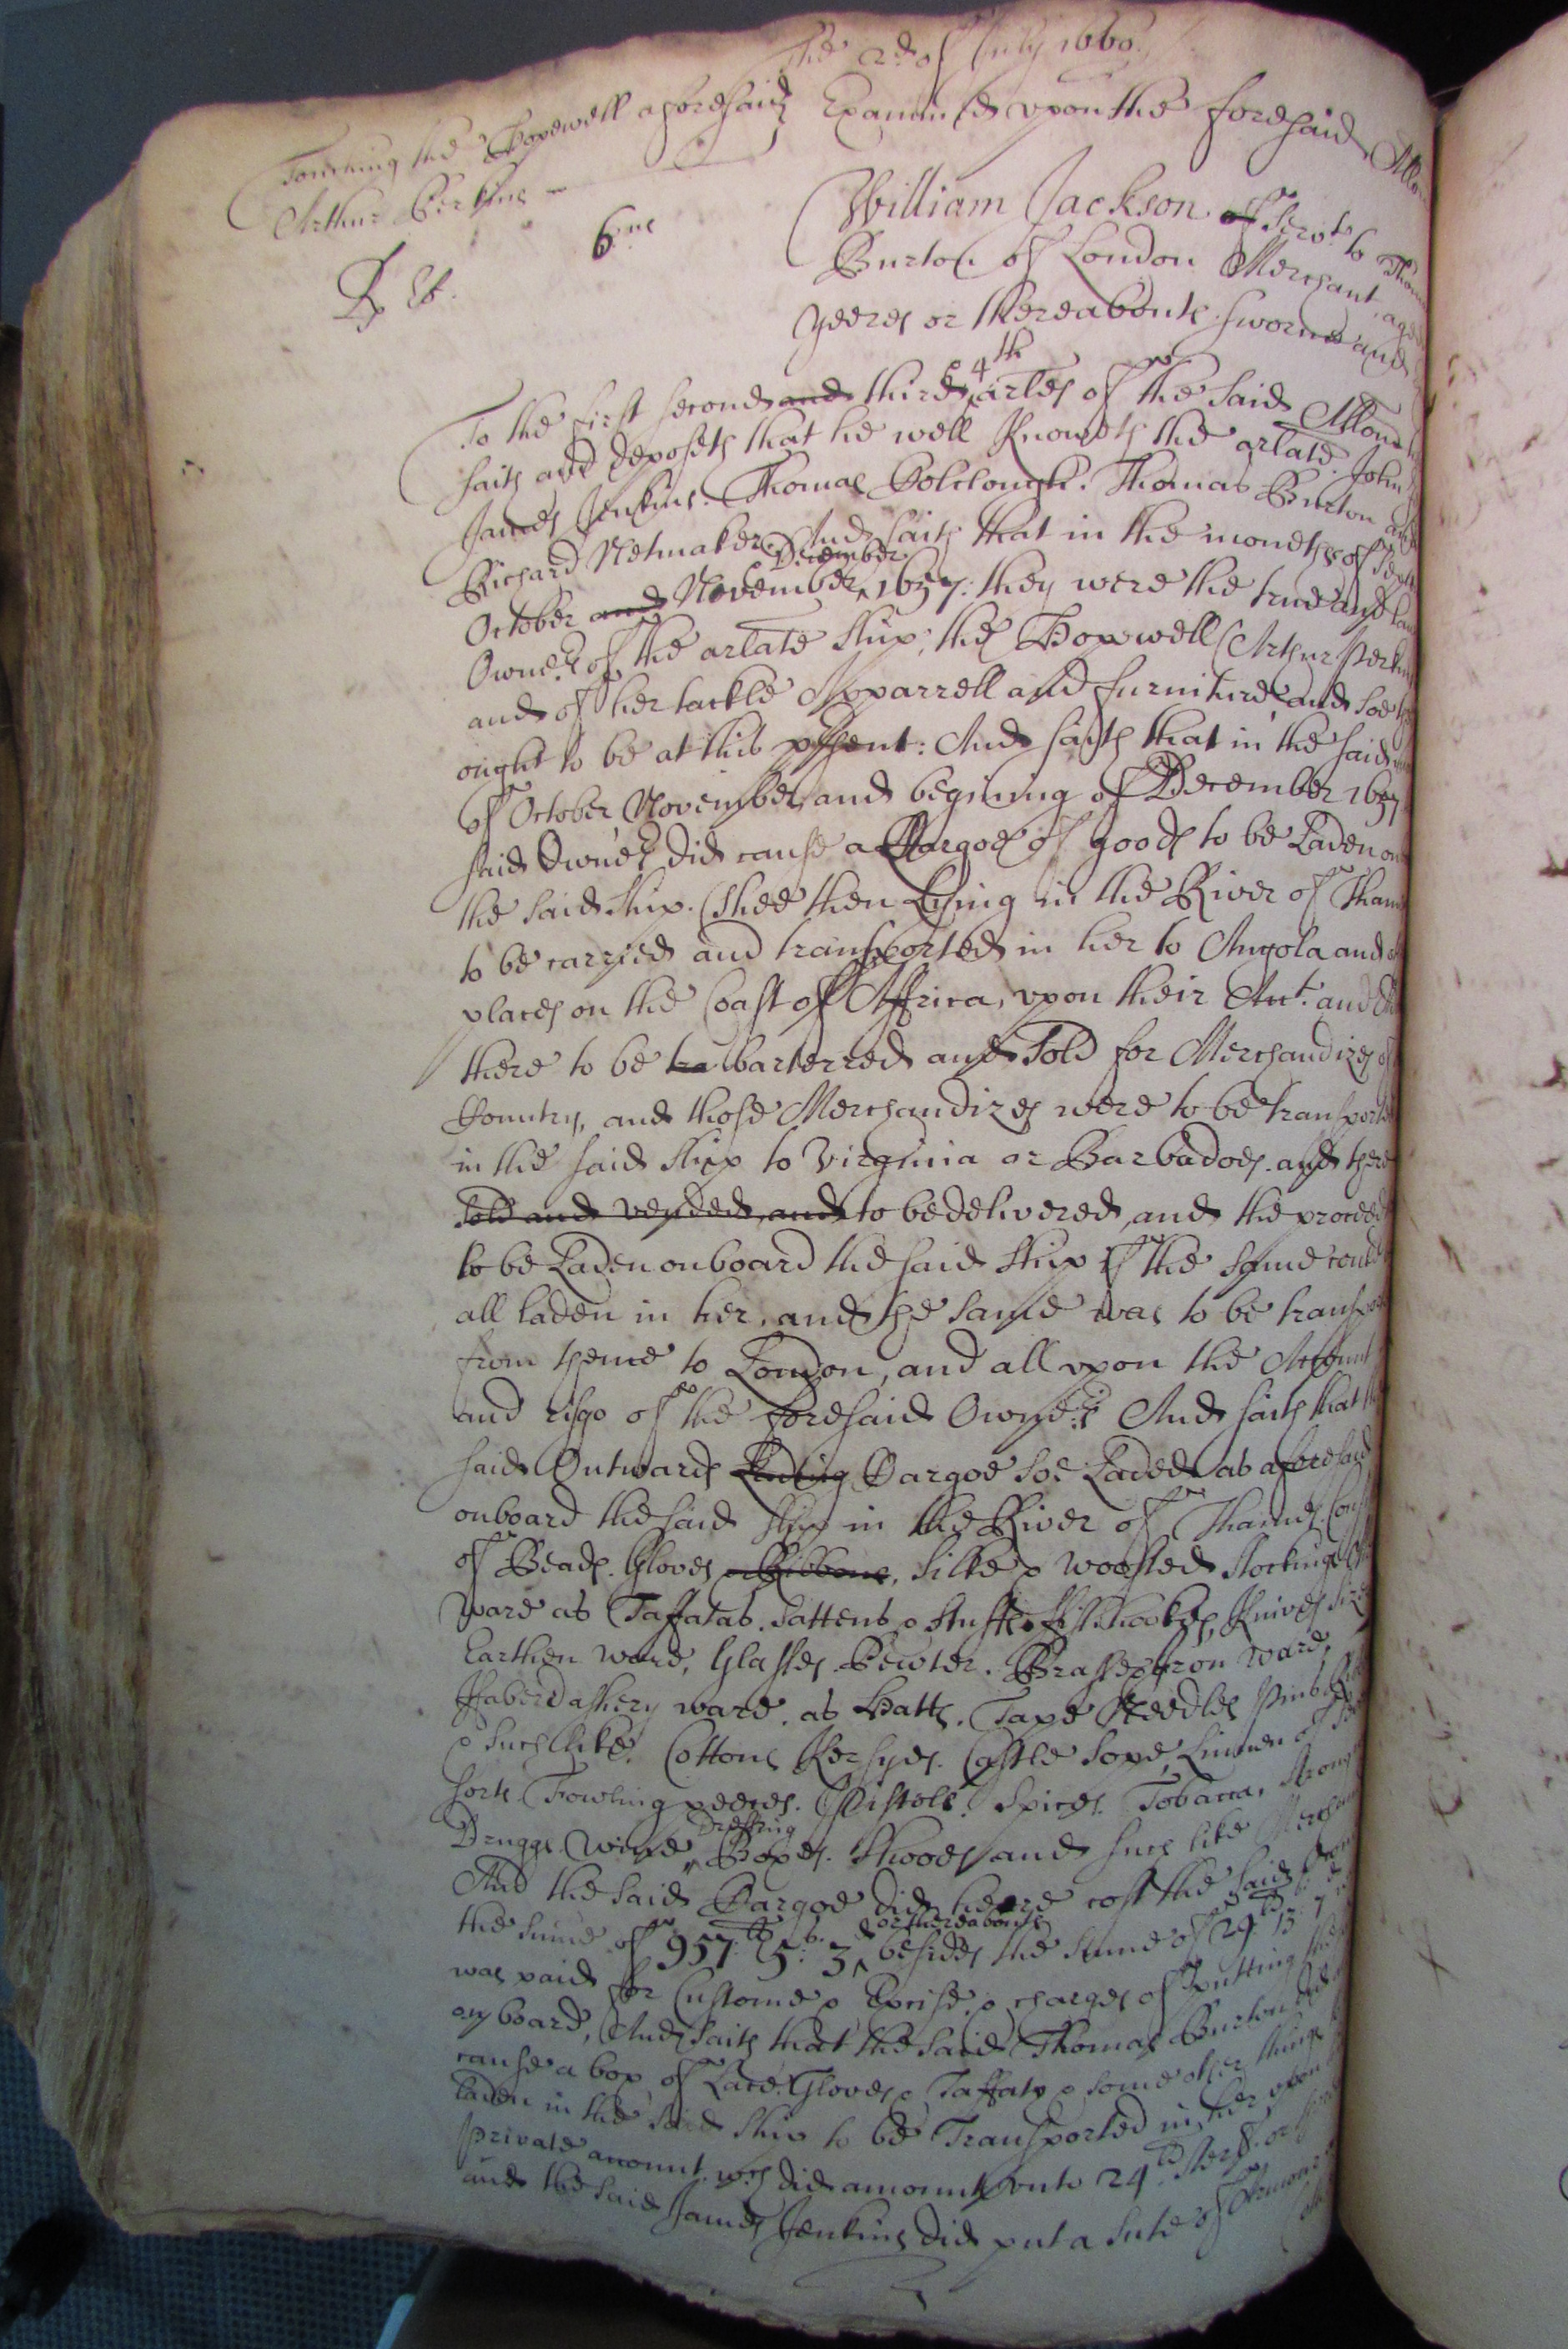 The 2d of July 1660.
Touching the Hopewell aforesaid
Arthur Perkins
Examined upon the foresaid Allon
Rp
6us
William Jackson of Servt. to Thom
Burton of London Merchant, aged
yeeres or thereabouts sworne and
To the first second and third 4th arles of the said Allon
saith and deposeth that he well knoweth the arlate John
James Jenkins. Thomas Colclough. Thomas Burton and
Richard Netmaker. And saith that in the moneths of Sept
October and November December 1657: they were the true and law
Owners of the arlate ship, the Hopewell (Arthur Perkin
and of her tackle Apparrell and furniture, and soe they
ought to be at this pssent: And saith that in the said
of October November, and begining of December 1657
said Owners did cause a Cargoe of goods to be Laden on
the said ship. (shee then Lying in the River of Tham
to be carried and transported in her to Angola and
places on the Coast of Affrica, upon their Acct. and
there to be tra barterred and sold for Merchandizes of
Country, and those Merchandizes were to be transporte
in the said ship to Virginia or Barbadoes. and there
sold and vended, and to be delivered, and the proceed
to be Laden onboard the said Ship if the same could
all laden in her, and the same was to be transpor
from thence to London, and all upon the Account
and risgo of the foresaid Owners And saith that th
said Outwards Lading Cargoe soe Laded as aforesaid
onboard the said ship in the River of Thames Cons
of Beads. Gloves & Ribbons, Silke & Woosted Stockings
ware as Taffatas. Sattens & Stuffs, ffishhookes, Knives
Earthen ware, Glasses. Pewter. Brasse & Iron ware,
Haberdashery ware. as Hatts. Tape Needles Pins
& such like. Cottons Kersyes. Castle Sope, Linnen of
sorts. Fowling peeces. Pistolls. Spices. Tobacca, Strong
Druggs Wine, Dressing Boxes. Shooes and such like Merchan
And the said Cargoe did heere cost the said
the summe of 957:li 5:s 3d or thereabouts besides the summe of 29:li 13: 7
was paid for Custome & Excise & charges of putting
onboard, And saith that the said Thomas Burton did
cause a box of Lace. Gloves & Taffaty & some other things
Laden in the said ship to be Transported in her, upon
private account. wch did amount unto 24li sterg. or
and the said James Jenkins did put a sute of